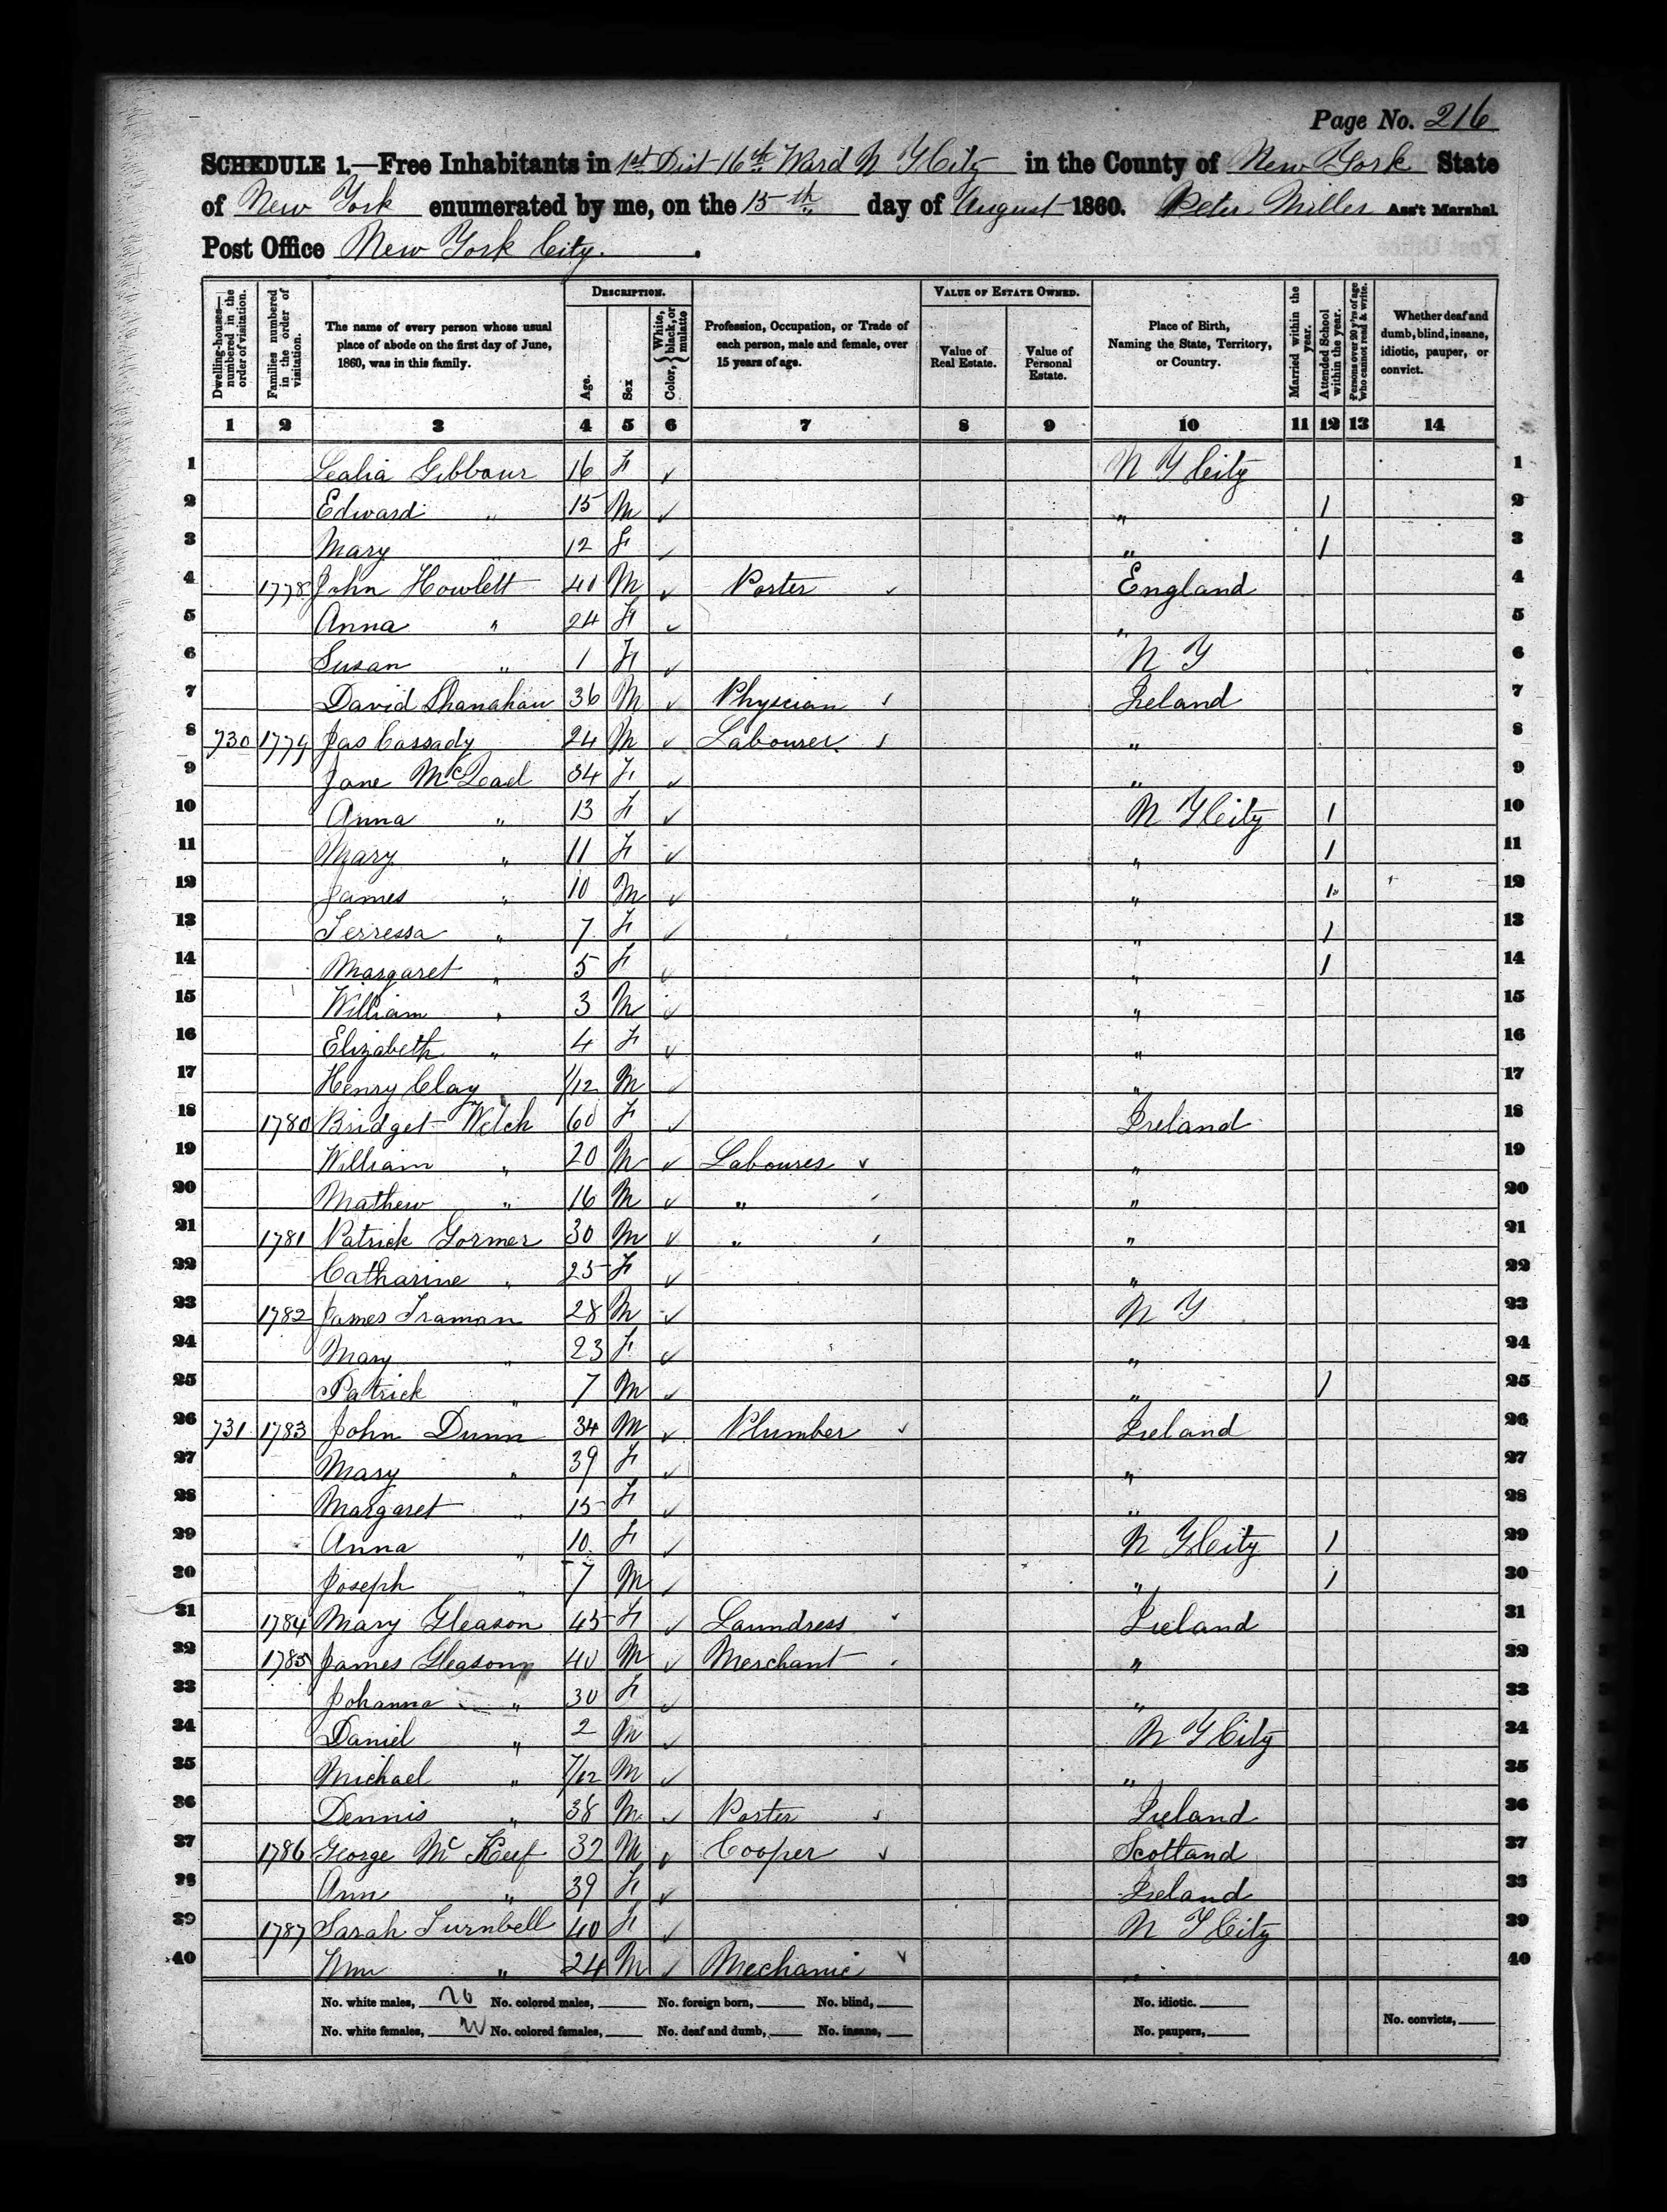 Page No. 216
SCHEDULE 1.—Free Inhabitants in 1st Dist 16th Ward N Y City in the County of New York State
of New York enumerated by me, on the 15th day of August 1860. Peter Miller Ass't Marshal.
Post Office New York City.
Dwelling-houses— numbered in the order of visitation.
Families numbered in the order of visitation.
The name of every person whose usual place of abode on the first day of June, 1860, was in this family.
DESCRIPTION.
Age.
Sex
Color, { White, black, or mulatto
Profession, Occupation, or Trade of each person, male and female, over 15 years of age.
VALUE OF ESTATE OWNED.
Value of Real Estate.
Value of Personal Estate.
Place of Birth, Naming the State, Territory, or Country.
Married within the year.
Attended School within the year.
Persons over 20 y'rs of age who cannot read & write.
Whether deaf and dumb, blind, insane, idiotic, pauper, or convict.
1 2 3 4 5 6 7 8 9 10 11 12 13 14
1 Lealia Gibbour 16 F ✓ N Y City 1
2 Edward " 15 M ✓ " 1 2
3 Mary 12 F ✓ " 1 3
4 1778 John Howlett 40 M ✓ Porter ✓ England 4
5 Anna " 24 F ✓ " 5
6 Susan " 1 F ✓ N Y 6
7 David Shanahan 36 M ✓ Physcian ✓ Ireland 7
8 730 1779 Jas Cassady 24 M ✓ Labourer ✓ " 8
9 Jane McLead 34 F ✓ " 9
10 Anna " 13 F ✓ N Y City 1 10
11 Mary " 11 F ✓ " 1 11
12 James " 10 M ✓ " 1 12
13 Terressa " 7 F ✓ " 1 13
14 Margaret " 5 F ✓ " 1 14
15 William " 3 M ✓ " 15
16 Elizabeth " 4 F ✓ " 16
17 Henry Clay 1/12 M ✓ " 17
18 1780 Bridget Welch 60 F ✓ Ireland 18
19 William " 20 M ✓ Labourer ✓ " 19
20 Mathew " 16 M ✓ " ✓ " 20
21 1781 Patrick Gormer 30 M ✓ " ✓ " 21
22 Catharine " 25 F ✓ " 22
23 1782 James Traman 28 M ✓ N Y 23
24 Mary " 23 F ✓ " 24
25 Patrick " 7 M ✓ " 1 25
26 731 1783 John Dunn 34 M ✓ Plumber ✓ Ireland 26
27 Mary " 39 F ✓ " 27
28 Margaret " 15 F ✓ " 28
29 Anna " 10 F ✓ N Y City 1 29
30 Joseph " 7 M ✓ " 1 30
31 1784 Mary Gleason 45 F ✓ Laundress ✓ Ireland 31
32 1785 James Gleason 40 M ✓ Merchant ✓ " 32
33 Johanna " 30 F ✓ " 33
34 Daniel " 2 M ✓ N Y City 34
35 Michael " 7/12 M ✓ " 35
36 Dennis " 38 M ✓ Porter ✓ Ireland 36
37 1786 George Mc Keef 32 M ✓ Cooper ✓ Scotland 37
38 Ann " 39 F ✓ Ireland 38
39 1787 Sarah Turnbell 40 F ✓ N Y City 39
40 Wm " 24 M ✓ Mechanic ✓ " 40
No. white males, 20 No. colored males, No. foreign born, No. blind, No. idiotic.
No. white females, No. colored females, No. deaf and dumb, No. insane, No. paupers, No. convicts,